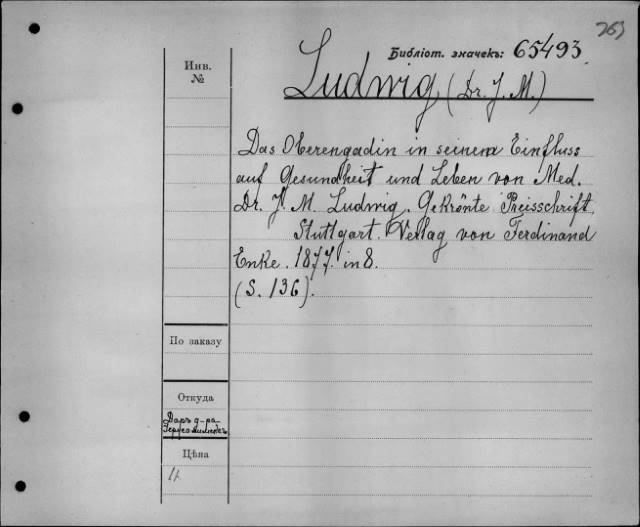 263
Библіот. значекъ: 65493.
Инв.
№
Ludwig (Dr. J. M.)
Das Oberengadin in seinem Einfluss
auf Gesundheit und Leben von Med.
Dr. J. M. Ludwig. Gekrönte Preisschrift.
Stuttgart. Verlag von Ferdinand
Enke. 1877. in 8.
(S. 136).
По заказу
Откуда
Даръ д-ра
Цѣна